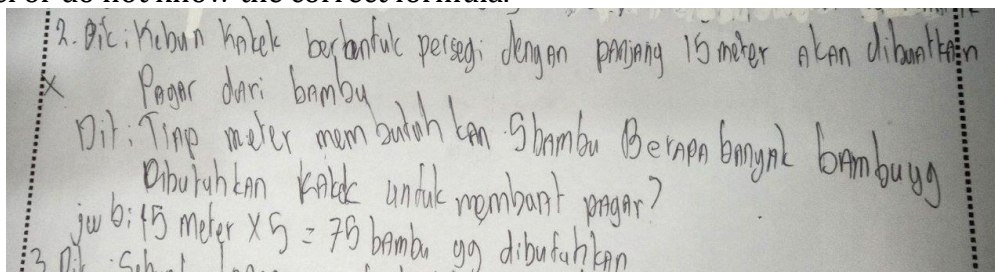 2. Dik: Kebun Kakek berbentuk persegi dengan panjang 15 meter akan dibuatkan
x Pagar dari bambu
Dit: Tiap meter membutuhkan 5 bambu Berapa banyak bambu yg
Dibutuhkan Kakek untuk membuat pagar?
jwb: 15 meter x 5 = 75 bambu yg dibutuhkan
3 Dik: